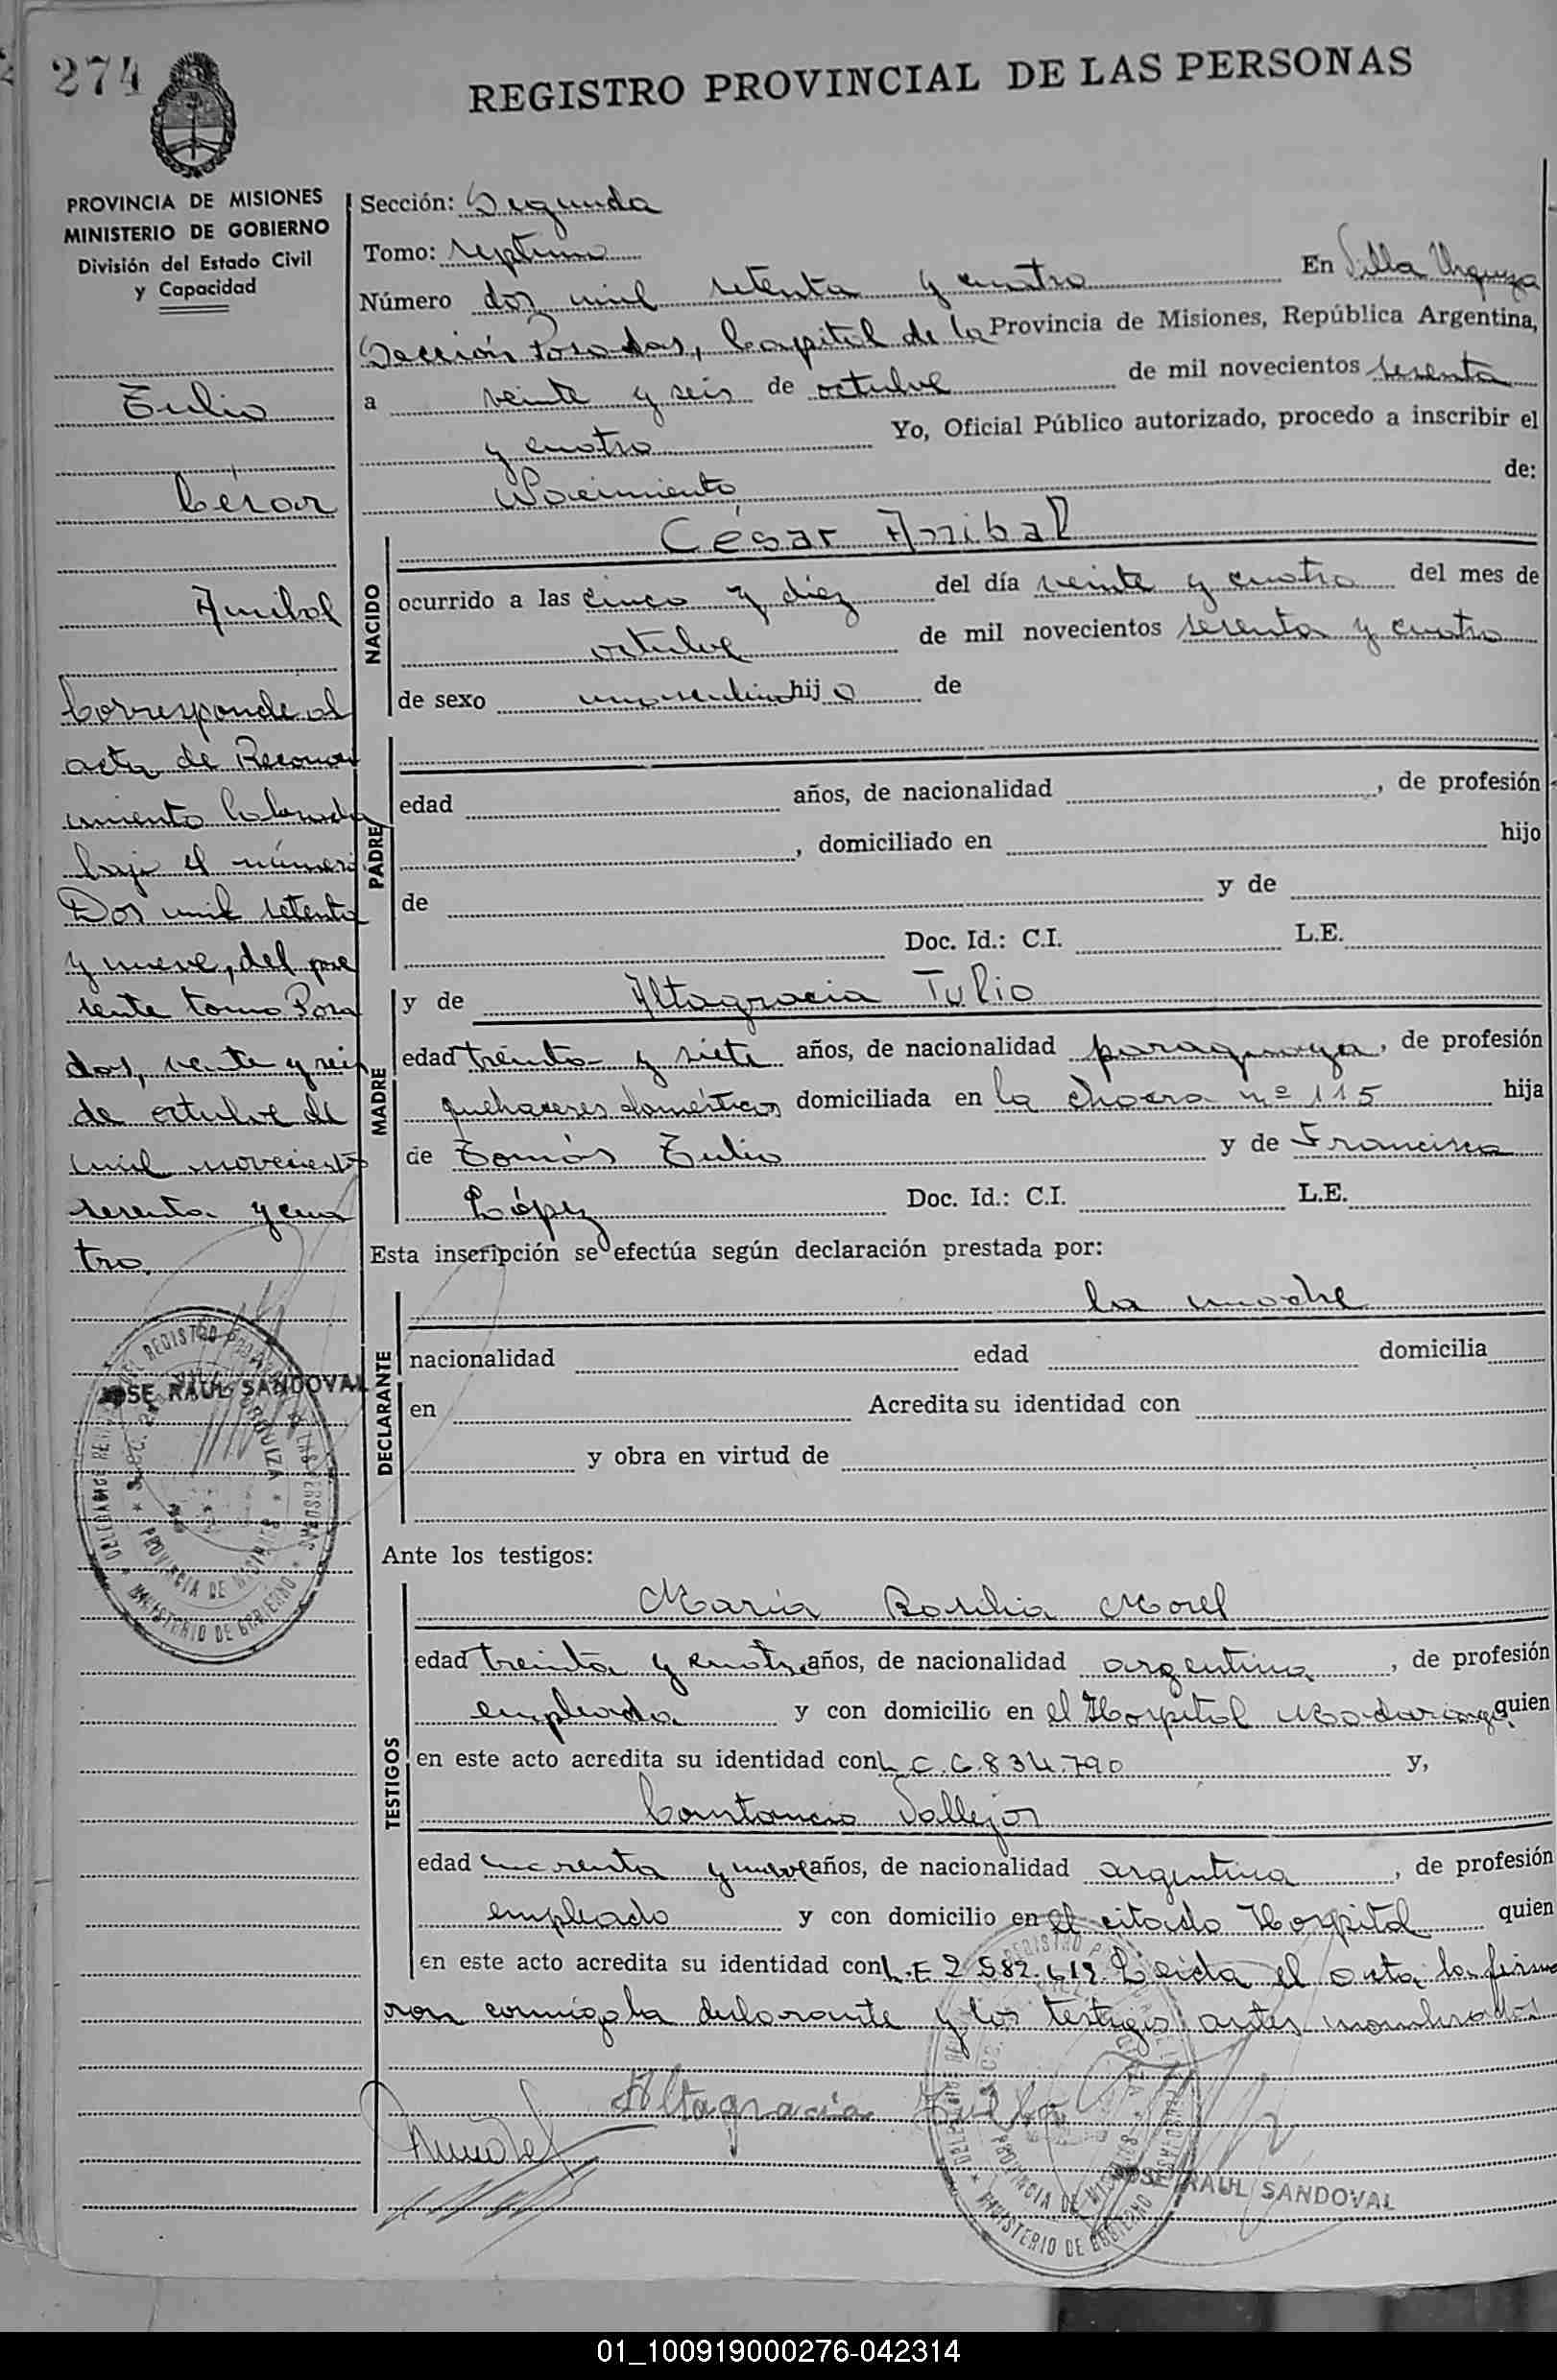 274
REGISTRO PROVINCIAL DE LAS PERSONAS
PROVINCIA DE MISIONES
MINISTERIO DE GOBIERNO
División del Estado Civil
y Capacidad
Tulio
César
Anibal
Corresponde al
acta de Reconoci
miento labrada
bajo el número
Dos mil setenta
y nueve, del pre
sente tomo Posa
das, veinte y seis
de octubre de
mil novecientos
sesenta y cua
tro.
JOSE RAUL SANDOVAL
Sección: Segunda
Tomo: septimo
Número dos mil setenta y cuatro En Villa Urquiza
Sección Posadas, Capital de la Provincia de Misiones, República Argentina,
a veinte y seis de octubre de mil novecientos sesenta
y cuatro Yo, Oficial Público autorizado, procedo a inscribir el
Nacimiento de:
NACIDO
César Anibal
ocurrido a las cinco y diez del día veinte y cuatro del mes de
octubre de mil novecientos sesenta y cuatro
de sexo masculino hijo de
PADRE
edad años, de nacionalidad , de profesión
, domiciliado en hijo
de y de
Doc. Id.: C.I. L.E.
MADRE
y de Altagracia Tulio
edad treinta y siete años, de nacionalidad paraguaya, de profesión
quehaceres domésticos domiciliada en la chacra nº 115 hija
de Tomás Tulio y de Francisca
López Doc. Id.: C.I. L.E.
Esta inscripción se efectúa según declaración prestada por:
DECLARANTE
la madre
nacionalidad edad domicilia
en Acredita su identidad con
y obra en virtud de
Ante los testigos:
TESTIGOS
María Morel
edad treinta y cuatro años, de nacionalidad argentina, de profesión
empleada y con domicilio en el Hospital Madariaga quien
en este acto acredita su identidad con L.C. 6.834.790 y,
Constancio Vallejos
edad cuarenta y nueve años, de nacionalidad argentina, de profesión
empleado y con domicilio en el citado Hospital quien
en este acto acredita su identidad con L.E 2.582.619. Leida el acta, la firma
ron conmigo la declarante y los testigos antes nombrados
Altagracia
JOSE RAUL SANDOVAL
01_100919000276-042314